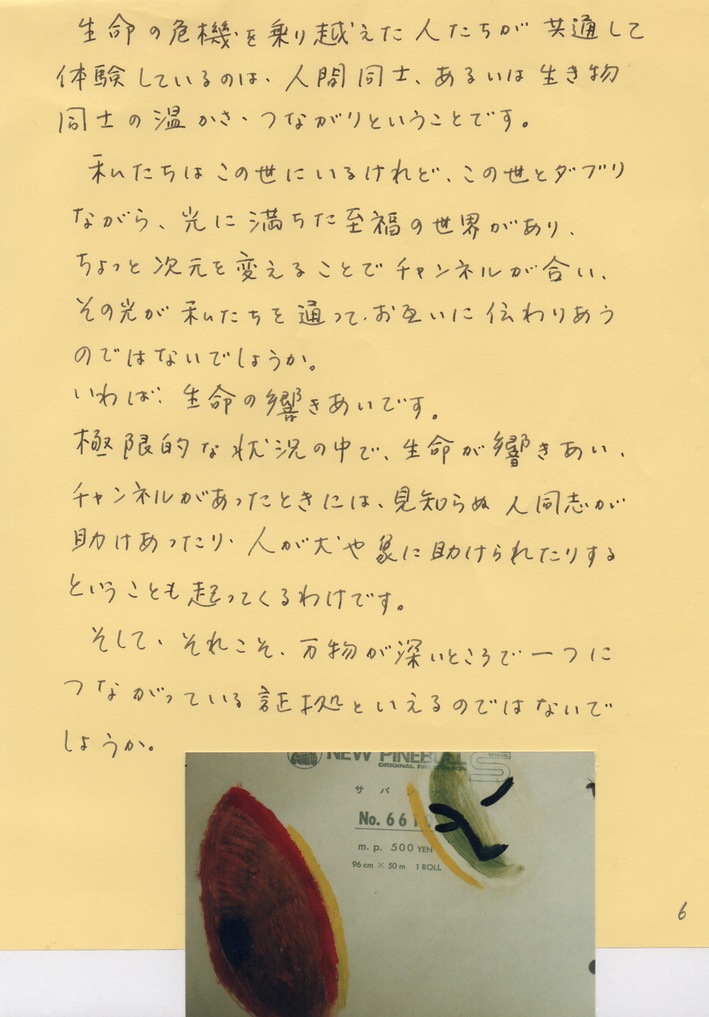 生命の危機を乗り越えた人たちが共通して
体験しているのは、人間同士、あるいは生き物
同士の温かさ・つながりということです。
私たちはこの世にいるけれど、この世とダブリ
ながら、光に満ちた至福の世界があり、
ちょっと次元を変えることでチャンネルが合い、
その光が私たちを通って、お互いに伝わりあう
のではないでしょうか。
いわば、生命の響きあいです。
極限的な状況の中で、生命が響きあい、
チャンネルがあったときには、見知らぬ人同志が
助けあったり、人が犬や象に助けられたりする
ということも起ってくるわけです。
そして、それこそ、万物が深いところで一つに
つながっている証拠といえるのではないで
しょうか。
NEW PINEBULL
サバ
No. 66
m. p. 500 YEN
96 cm × 50 m 1 ROLL
6